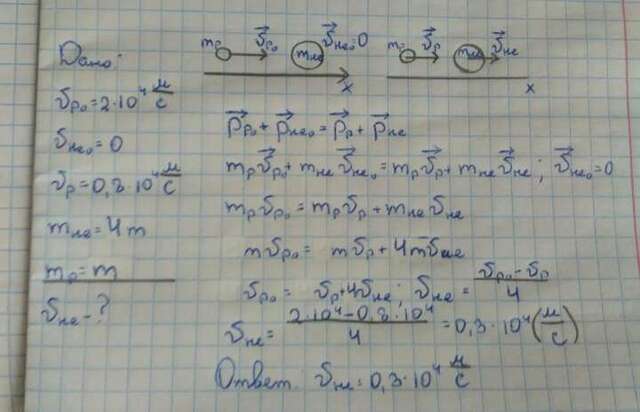 Дано:
υp₀=2·10⁴ м/с
υHe₀=0
υp=0,8·10⁴ м/с
mHe=4m
mp=m
υHe-?
mp υ⃗p₀ mHe υ⃗He₀=0
x
mp υ⃗p mHe υ⃗He
x
p⃗p₀+p⃗He₀=p⃗p+p⃗He
mpυ⃗p₀+mHeυ⃗He₀=mpυ⃗p+mHeυ⃗He; υ⃗He₀=0
mpυp₀=mpυp+mHeυHe
mυp₀= mυp+4mυHe
υp₀= υp+4υHe; υHe= (υp₀-υp)/4
υHe= (2·10⁴-0,8·10⁴)/4 =0,3·10⁴(м/с)
Ответ: υHe=0,3·10⁴ м/с